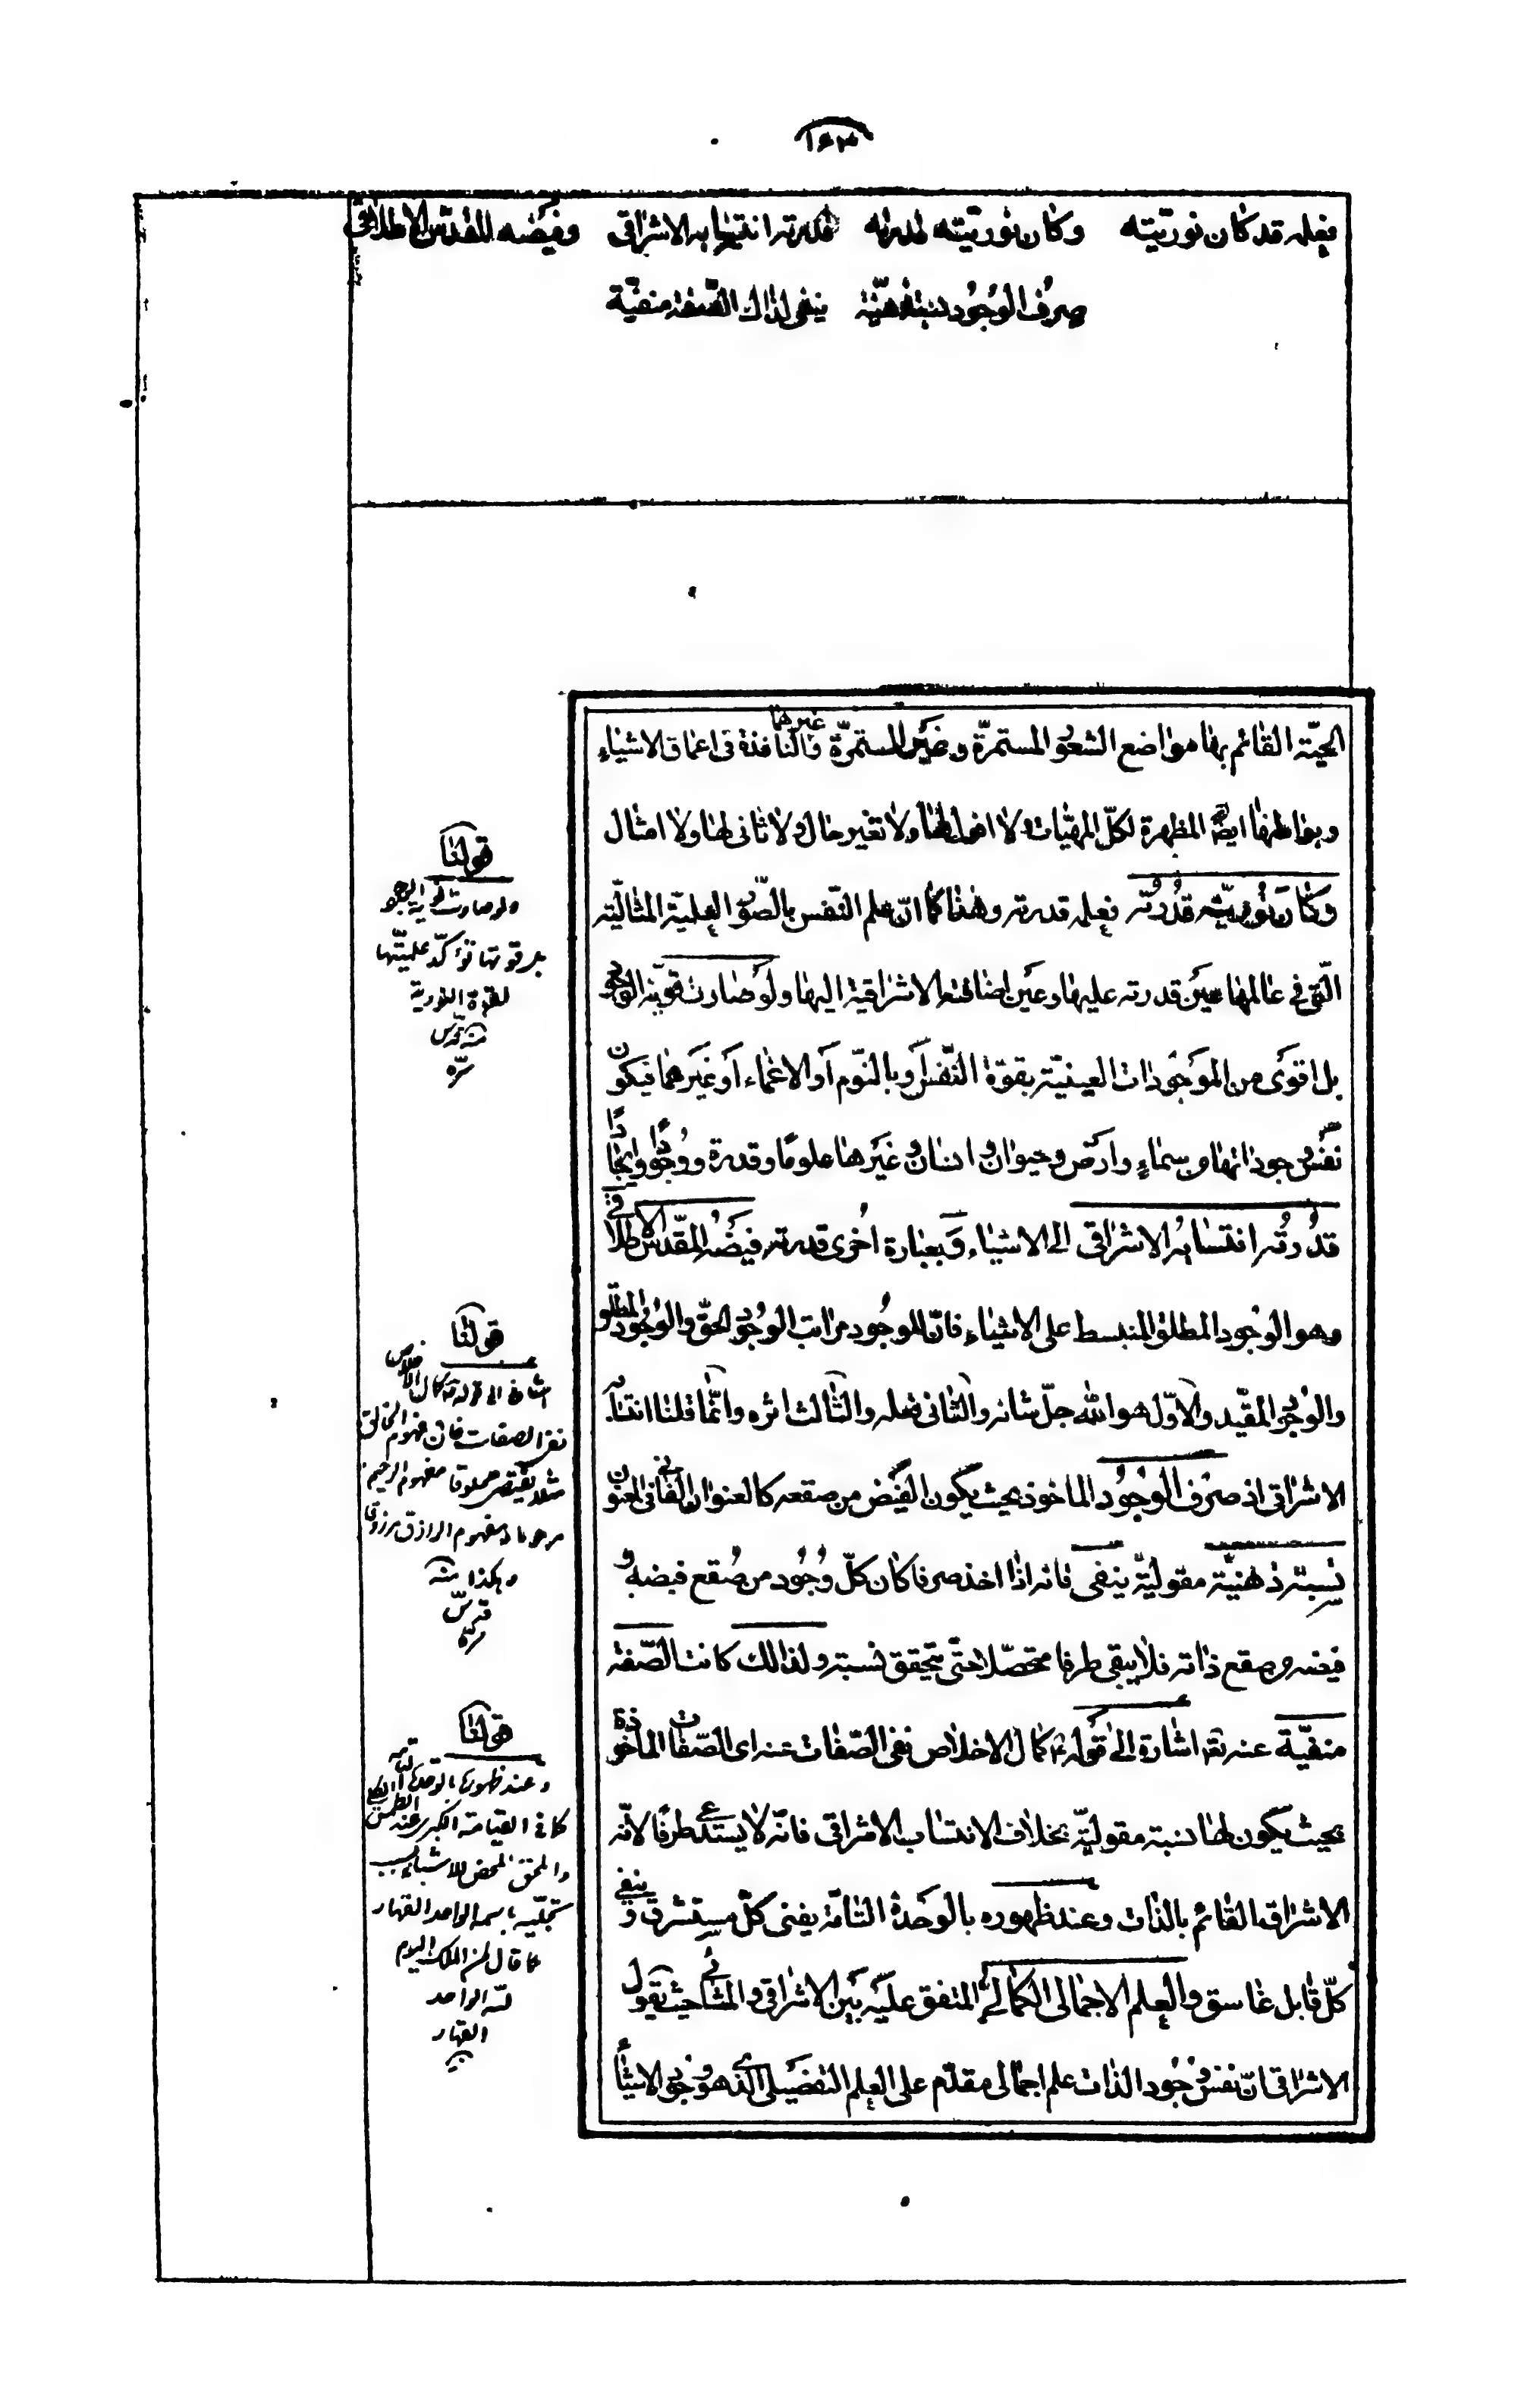 ١٦٣
فعلمه قد كان نوريته وكان نوريته قدرته قدرته انتسابه الاشراقي وفيضه المقدس الاطلاقي
صرف الوجود نسبة ذهنية ينفي لذلك الصفة منفية
الحيّة القائم بها مواضع الشعور المستمرّة وغير المستمرّة والنافذة في اعماق الاشياء
وبواطنها ايضا المظهرة لكلّ المهيّات ولا افول لها ولا تغير حال ولا ثاني لها ولا امثال
وكان نوريّته قدرته فعلمه قدرته وهذا كما انّ علم النّفس بالصّور العلمية المثاليّة
الّتي في عالمها عين قدرته عليها وعين اضافته الاشراقية اليها ولو صارت قويّة الوجود
بل اقوى من الموجودات العينيّة بقوّة النّفس أو بالنّوم أو الاغماء أو غيرهما فيكون
نفس وجوداتها من سماء وارض وحيوان وانسان وغيرها علوما وقدرة ووجودا وايجادا
قدرته انتسابه الاشراقي الى الاشياء وبعبارة اخرى قدرته فيضه المقدّس الاطلاقي
وهو الوجود المطلق المنبسط على الاشياء فانّ للوجود مراتب الوجود الحقّ والوجود المطلق
والوجود المقيّد والاوّل هو الله جلّ شانه والثاني فعله والثالث اثره وانّما قلنا انتسابه
الاشراقي اذ صرف الوجود الماخوذ بحيث يكون الفيض من صقعه كالعنوان الفاني في المعنون
نسبة ذهنيّة مقوليّة ينفي فانه اذا اخذ صرفا كان كلّ وجود من صقع فيضه و
فيضه من صقع ذاته فلا يبقى طرفا متحصّلا حتّى يتحقق نسبة ولذلك كانت الصّفة
منفيّة عنه تعالى اشارة الى قوله ع كمال الاخلاص نفي الصّفات عنه اي الصّفات الماخوذة
بحيث يكون لها نسبة مقوليّة بخلاف الانتساب الاشراقي فانّه لا يستدعي طرفا لانّه
الاشراق القائم بالذات وعند ظهوره بالوحدة التامّة يفنى كلّ مستشرق وينفي
كلّ قابل غاسق والعلم الاجمالي الكمالي المتفق عليه بين الاشراقي والمشائي حيث يقول
الاشراقي انّ نفس وجود الذات علم اجمالي مقدّم على العلم التفضيلي الذي هو وجود الاشياء
قولنا
ولو صارت قوية الوجود
بل قوتها تؤكّد علميّتها
لقوة النورية
منه قدّس
سرّه
قولنا
اشارة الى قوله ع كمال الاخلاص
نفي الصفات فان مفهوم الخالق
مثلا يقتضي مخلوقا مفهوم الرحيم
مرحوما ومفهوم الرازق مرزوقا
وهكذا منه
قدّس
سرّه
قولنا
وعند ظهوره بالوحدة التامة
كما في القيامة الكبرى عند الطمس الكلي
والمحق المحض للاشياء بسبب
تجلّيه باسمه الواحد القهار
كما قال لمن الملك اليوم
لله الواحد
القهار